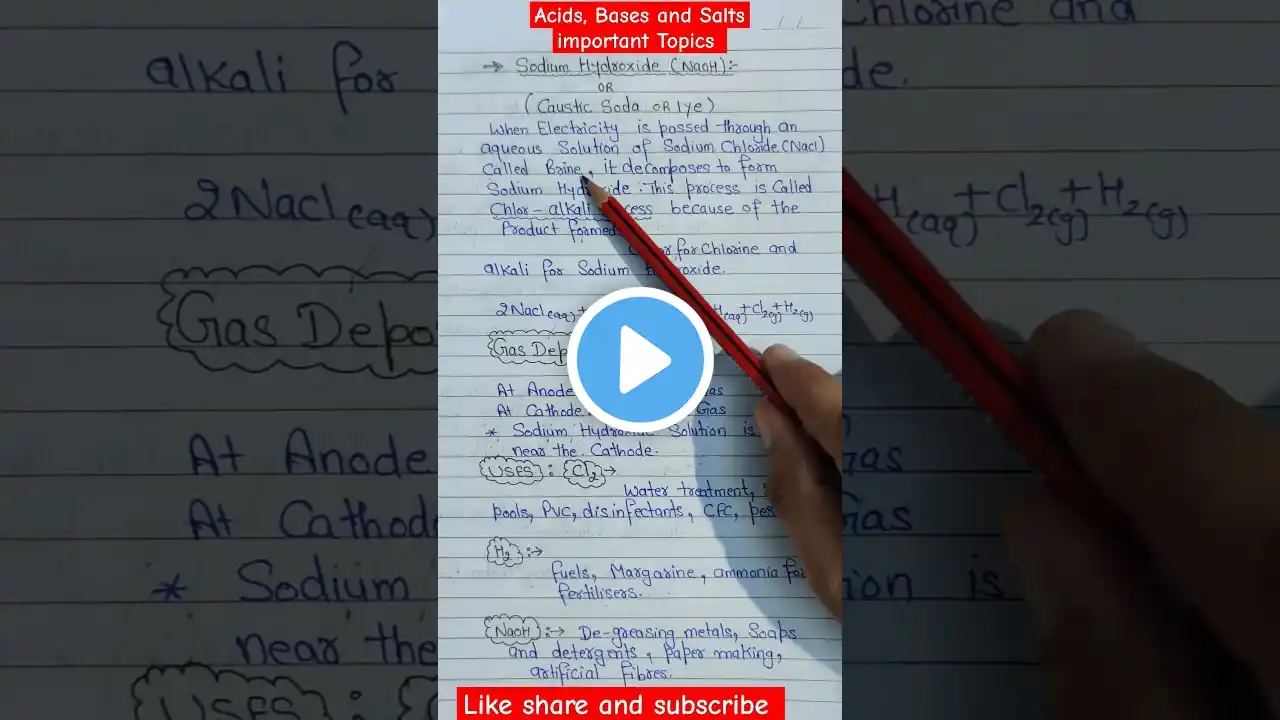 Acids, Bases and Salts
important Topics
→ Sodium Hydroxide (NaOH):-
OR
(Caustic Soda OR lye)
When Electricity is passed through an
aqueous Solution of Sodium Chloride (Nacl)
Called Brine, it decomposes to form
Sodium Hydroxide. This process is Called
Chlor-alkali Process because of the
Product formed
for Chlorine and
alkali for Sodium Hydroxide.
2Nacl(aq) + H(aq) + Cl2(g) + H2(g)
Gas Dep
At Anode Gas
At Cathode Gas
* Sodium Hydroxide Solution is
near the Cathode.
USES: Cl2 →
Water treatment,
pools, PVC, disinfectants, CFC, pes
H2 :→
fuels, Margarine, ammonia for
fertilisers.
NaOH :→ De-greasing metals, Soaps
and detergents, paper making,
artificial fibres.
Like share and subscribe